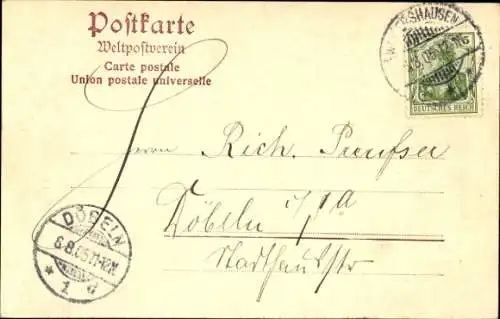 Postkarte
Weltpostverein
Carte postale
Union postale universelle
SHAUSEN
5
DEUTSCHES REICH
Herrn Rich. Preusser
Döbeln i/Sa
DÖBELN
6.8.05.11-12V.
* 1 d